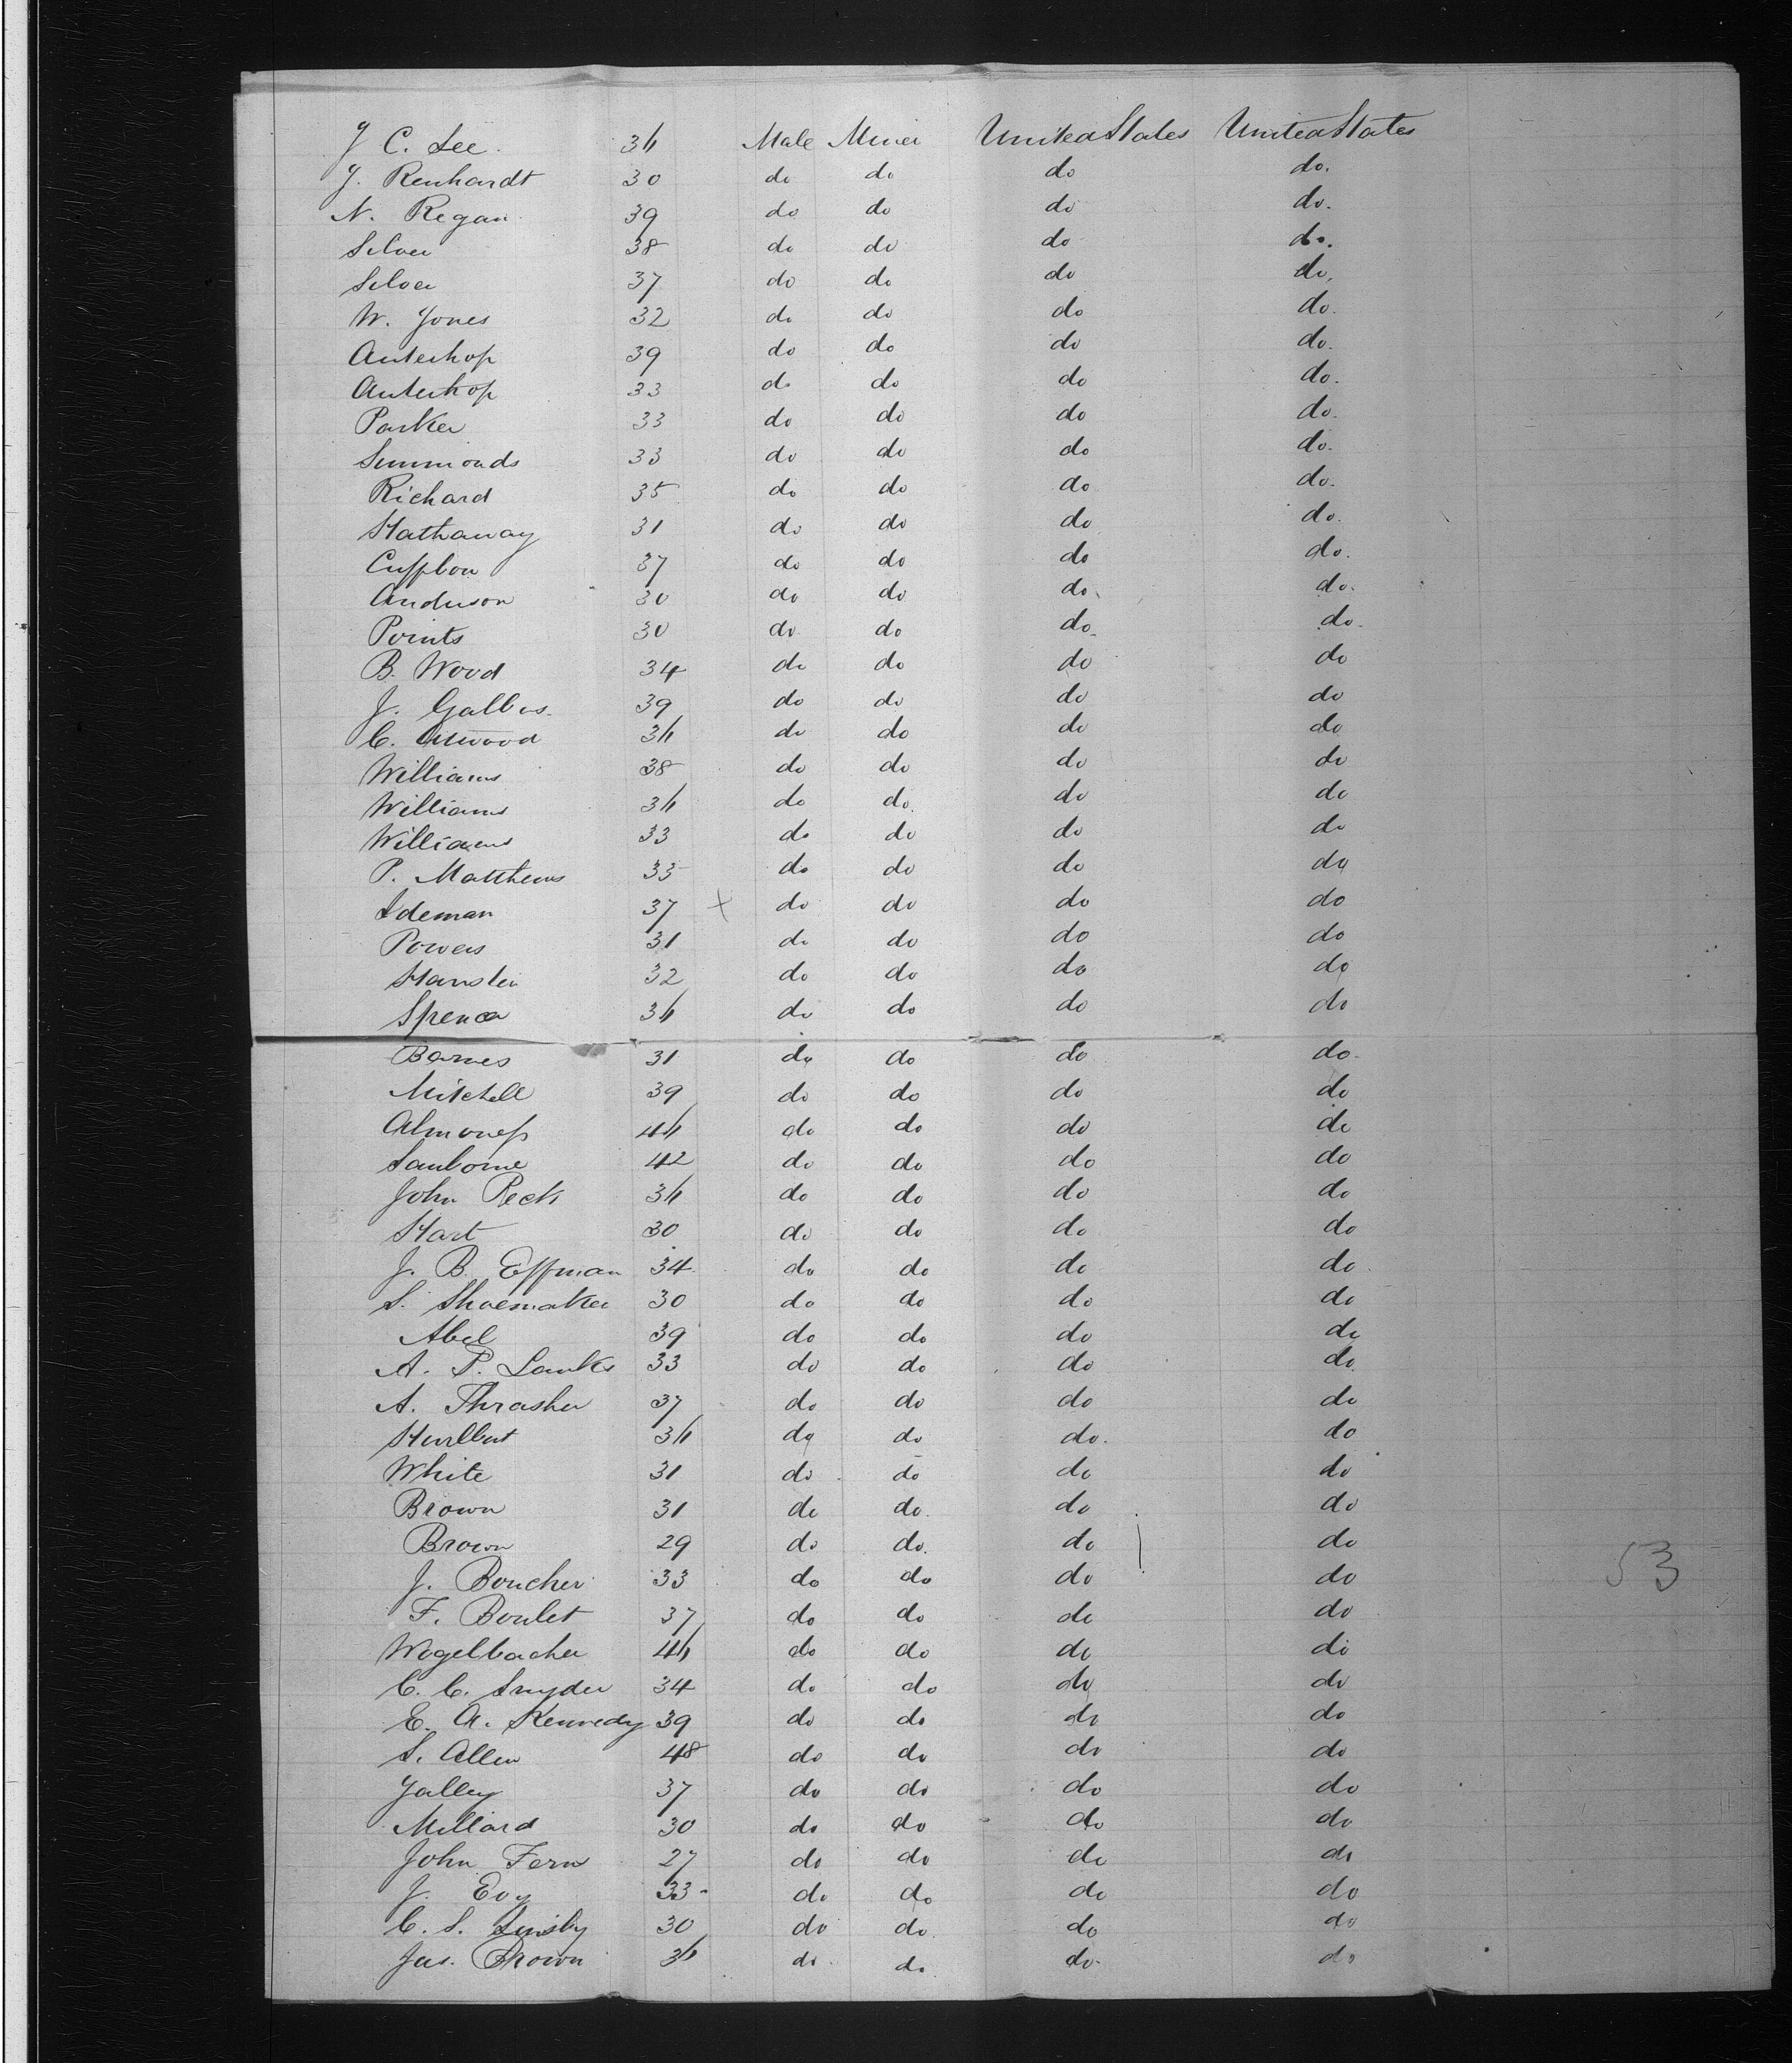 J C. Lee 36 Male Miner United States United States
J. Renhardt 30 do do do do.
N. Regan 39 do do do do.
Silver 38 do do do do.
Silver 37 do do do do.
W. Jones 32 do do do do.
Auterhop 39 do do do do.
Auterhop 33 do do do do.
Parker 33 do do do do.
Simmonds 33 do do do do.
Richard 35 do do do do.
Hathaway 31 do do do do.
37 do do do do.
Anderson 30 do do do do.
Points 30 do do do do.
B. Wood 34 do do do do
J. 39 do do do do
C. Atwood 36 do do do do
Williams 38 do do do do
Williams 36 do do do do
Williams 33 do do do do
P. Matthews 35 do do do do
Ideman 37 x do do do do
Powers 31 do do do do
Hansler 32 do do do do
Spencer 36 do do do do
Barnes 31 do do do do.
Mitchell 39 do do do do
Almoness 46 do do do do
Sanborne 42 do do do do
John Peck 36 do do do do
Hart 30 do do do do
J. B. Effman 34 do do do do
S. Shoemaker 30 do do do do
Abel 39 do do do do
A. P. Lanks 33 do do do do
A. Thrasher 37 do do do do
Hurlbut 36 do do do. do
White 31 do do do do
Brown 31 do do. do do
Brown 29 do do. do do
J. Boucher 33 do do do do 53
F. Boulet 37 do do do do
Wogelbacher 46 do do do do
C. C. Snyder 34 do do do do
E. A. Kennedy 39 do do do do
S. Allen 48 do do do do
Jalley 37 do do do do
Millard 30 do do do do
John Fern 27 do do do do
J. Evy 33 do do do do
C. S. 30 do do do do
Jas. Brown 36 do do do do